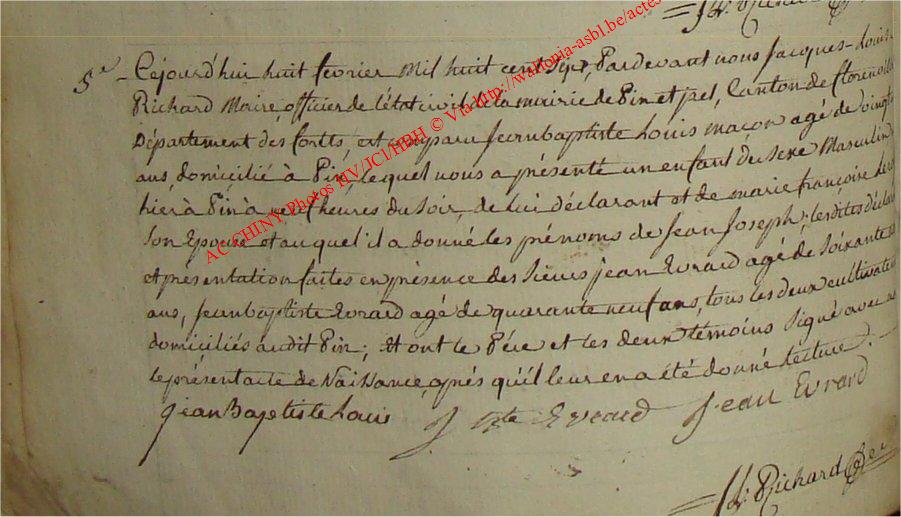 5e. Cejourd'hui huit fevrier Mil huit cent sept, Pardevant nous Jacques-Louis
Richard Maire, officier de l'état civil de la mairie de Pin et jzel, Canton de florenville
Département des forêts, est comparu Jean baptiste Louis maçon agé de vingt
ans, domicilié à Pin, lequel nous a présenté un enfant du sexe Masculin
hier à Pin à neuf heures du Soir, de lui déclarant et de marie françoise
son Epouse et auquel il a donné les prénoms de Jean Joseph; lesdites
et présentation faites en présence des Sieurs jean Evrard agé de Soixante
ans, Jean baptiste Evrard agé de quarante neuf ans, tous les deux
domiciliés audit Pin; Et ont le Pére et les deux témoins Signé avec
le présent acte de Naissance, aprés qu'il leur en a été donné lecture.
jean Baptiste Louis J Bte Evrard Jean Evrard
Richard
AC CHINY, Photos HV/JCl/HBH © Via http://wallonia-asbl.be/actes